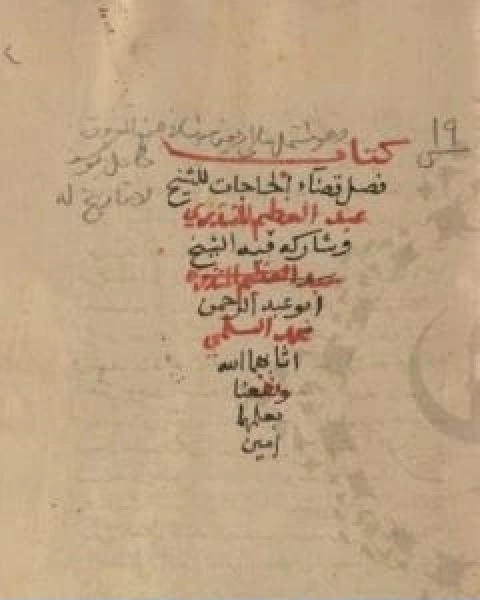 ١٩
كتاب
فضل قضاء الحاجات للشيخ
عبد العظيم المنذري
وشاركه فيه الشيخ
عبد العظيم المنذري
ابو عبد الرحمن
محمد السلمي
اثابهما الله
ونفعنا
بعلمهما
امين
لا تاريخ له